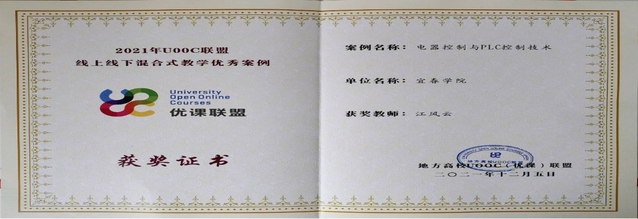 2021年UOOC联盟
线上线下混合式教学优秀案例
University
Open Online
Courses
优课联盟
获奖证书
案例名称：电器控制与PLC控制技术
单位名称：宜春学院
获奖教师：江风云
地方高校UOOC（优课）联盟
二〇二一年十二月五日